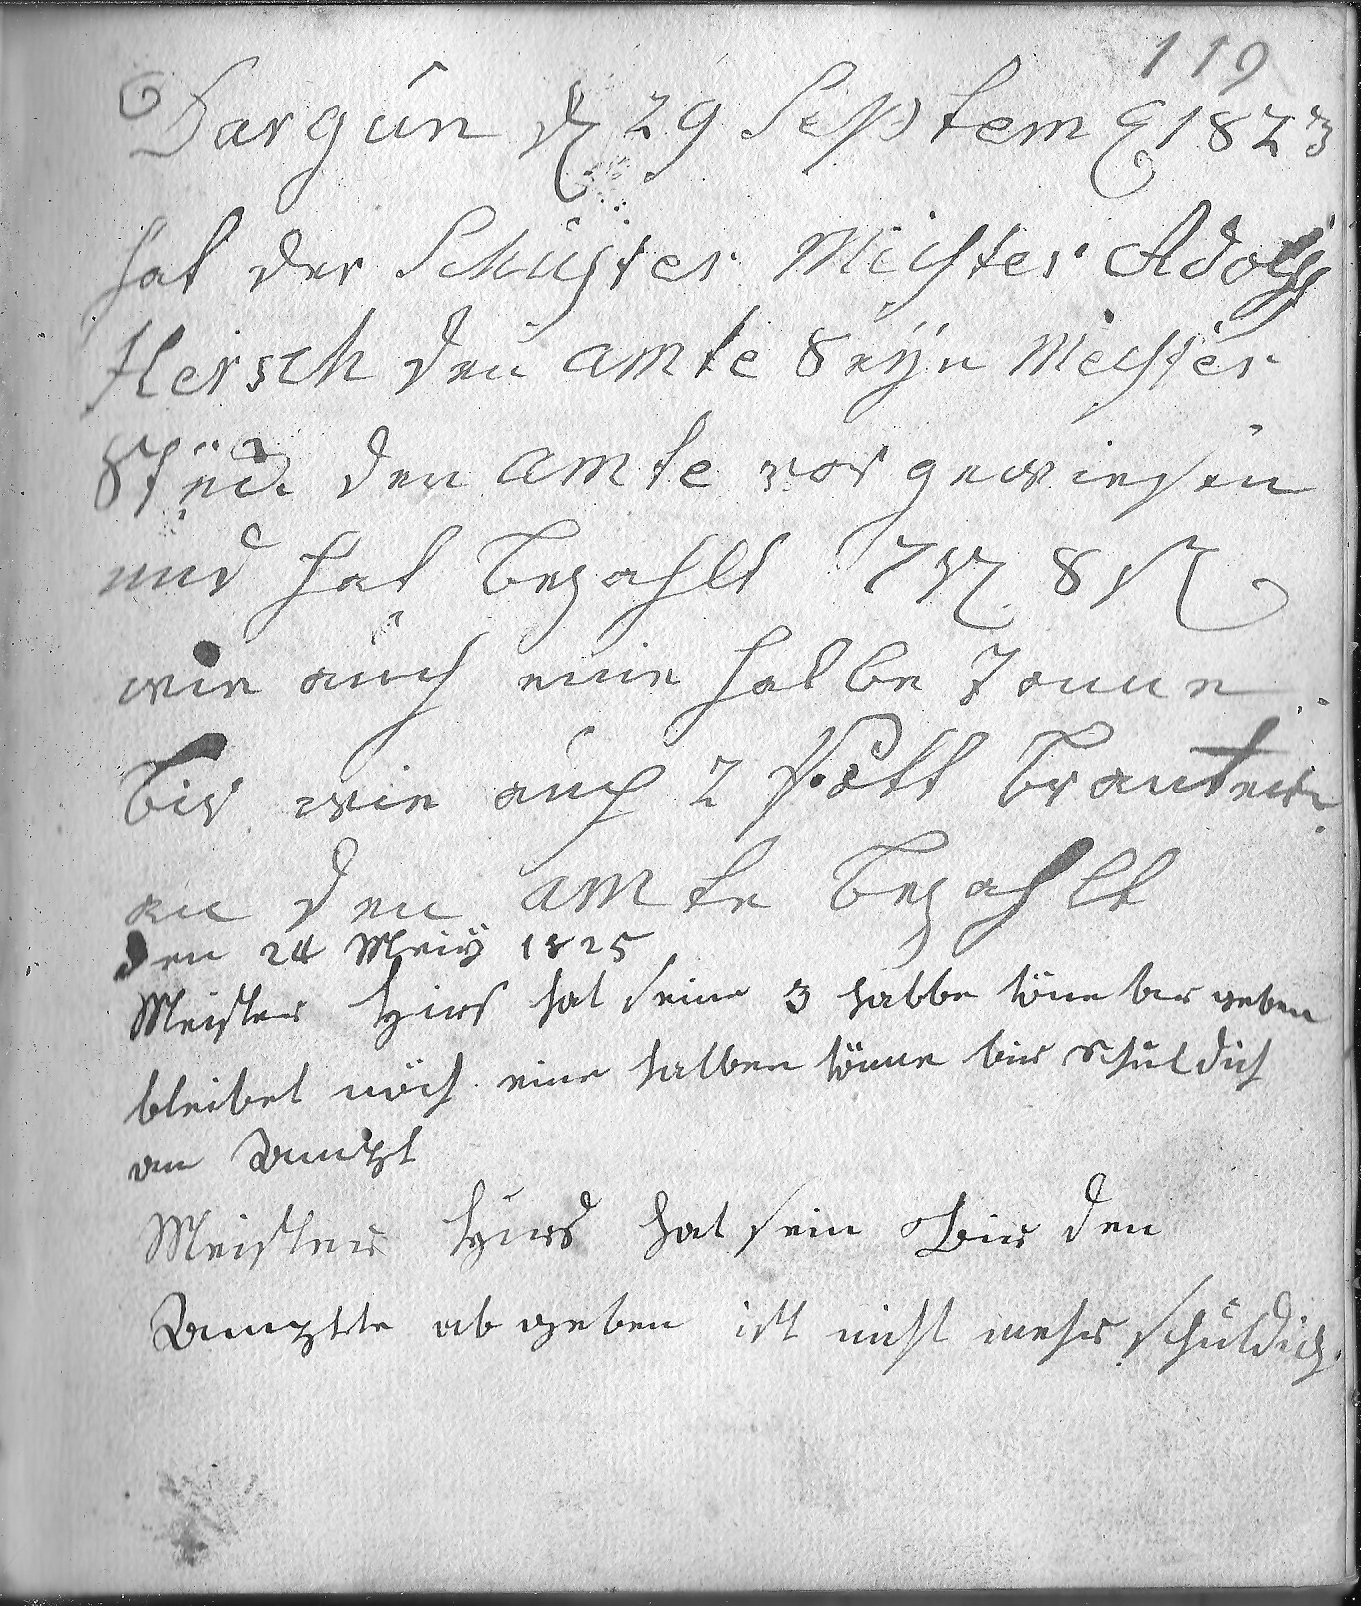 119
Dargun d 29 Septem 1823
hat der Schuster Meister Adolff
Hersch den amte Seÿn Meister
Stück den amte vor gewiesen
und hat bezahlt 7 8
wie auch eine halbe Tonne
bir wie auch 2 Pott branten
an den amte bezahlt
den 24 Meiÿ 1825
Meister Hirs hat seine 3 halbe töne bir geben
bleibet noch eine halben tönne bir schuldich
an
Meister Hirs hat sein Bir den
ab geben ist nicht mehr schuldich.